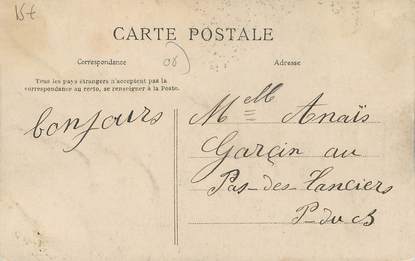 15€
CARTE POSTALE
Correspondance
06
Adresse
Tous les pays étrangers n'acceptent pas la
correspondance au recto, se renseigner à la Poste.
bonjours
Melle Anaïs
Garçin au
Pas-des-Lanciers
P-du-B